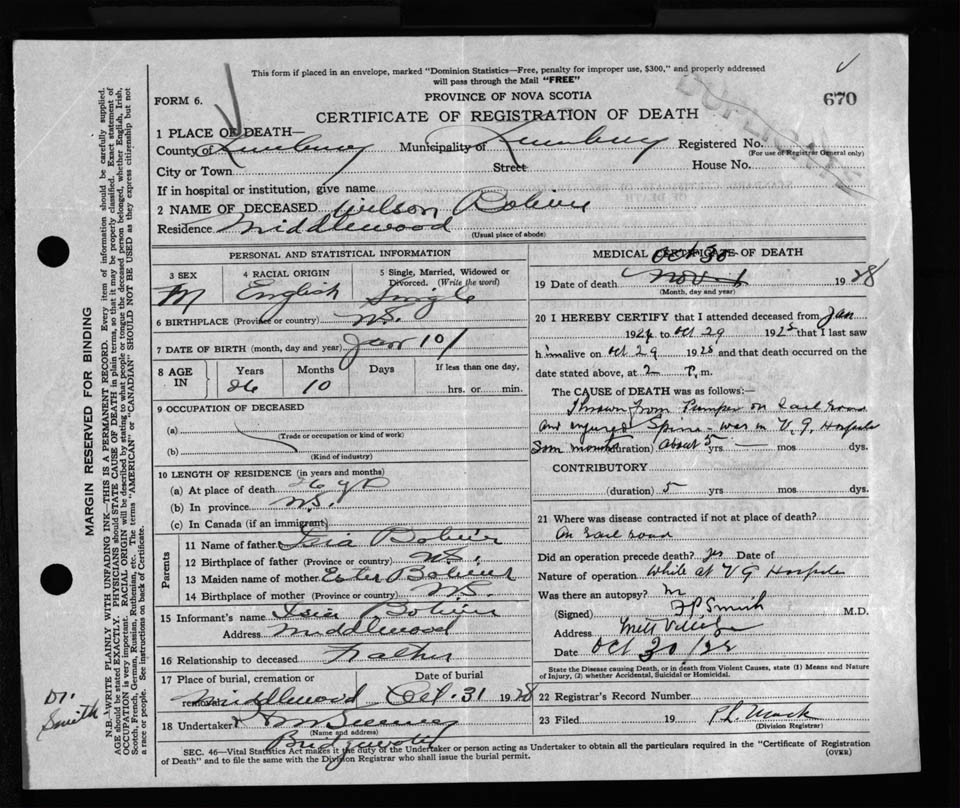 This form if placed in an envelope, marked "Dominion Statistics—Free, penalty for improper use, $300," and properly addressed
will pass through the Mail "FREE"
DUPLICATE
FORM 6.
PROVINCE OF NOVA SCOTIA
670
CERTIFICATE OF REGISTRATION OF DEATH
1 PLACE OF DEATH—
County of Lunenburg Municipality of Lunenburg Registered No.
(For use of Registrar General only)
City or Town Street House No.
If in hospital or institution, give name
2 NAME OF DECEASED Wilson Bolivar
Residence Middlewood
(Usual place of abode)
PERSONAL AND STATISTICAL INFORMATION
3 SEX 4 RACIAL ORIGIN 5 Single, Married, Widowed or Divorced. (Write the word)
M English Single
6 BIRTHPLACE (Province or country) N.S.
7 DATE OF BIRTH (month, day and year) Jan 101
8 AGE IN Years Months Days If less than one day,
26 10 hrs. or min.
9 OCCUPATION OF DECEASED
(a)
(Trade or occupation or kind of work)
(b)
(Kind of industry)
10 LENGTH OF RESIDENCE (in years and months)
(a) At place of death 26 yr
(b) In province N.S.
(c) In Canada (if an immigrant)
Parents
11 Name of father Isia Bolivar
12 Birthplace of father (Province or country) N.S.
13 Maiden name of mother Ester Bolivar
14 Birthplace of mother (Province or country) N.S.
15 Informant's name Isia Bolivar
Address Middlewood
16 Relationship to deceased Father
17 Place of burial, cremation or removal Date of burial
Middlewood Oct. 31 1928
18 Undertaker
(Name and address)
Bridgewater
MEDICAL CERTIFICATE OF DEATH
Oct 30
19 Date of death Nov. 1 1928
(Month, day and year)
20 I HEREBY CERTIFY that I attended deceased from Jan
1924 to Oct 29 1928 that I last saw
him alive on Oct 29 1928 and that death occurred on the
date stated above, at 2 P.m.
The CAUSE of DEATH was as follows:—
Thrown from Pumper on rail road
and injured Spine - was in V.G. Hospital
Som months (duration) about 5 yrs mos dys.
CONTRIBUTORY
(duration) 5 yrs mos dys.
21 Where was disease contracted if not at place of death?
On rail road
Did an operation precede death? yes Date of
Nature of operation While at V G Hospital
Was there an autopsy?
(Signed) F P Smith M.D.
Address Mill Village
Date Oct 30/28
State the Disease causing Death, or in death from Violent Causes, state (1) Means and Nature
of Injury, (2) whether Accidental, Suicidal or Homicidal.
22 Registrar's Record Number
23 Filed 19 Mack
(Division Registrar)
SEC. 46—Vital Statistics Act makes it the duty of the Undertaker or person acting as Undertaker to obtain all the particulars required in the "Certificate of Registration
of Death" and to file the same with the Division Registrar who shall issue the burial permit.
(OVER)
MARGIN RESERVED FOR BINDING
N.B.—WRITE PLAINLY WITH UNFADING INK—THIS IS A PERMANENT RECORD. Every item of information should be carefully supplied.
AGE should be stated EXACTLY. PHYSICIANS should STATE CAUSE OF DEATH in plain terms, so that it may be properly classified. Exact statement of
OCCUPATION is very important. RACIAL ORIGIN will be described by stating to what people or tongue the deceased person belonged, whether English, Irish,
Scotch, French, German, Russian, Ruthenian, etc. The terms "AMERICAN" or "CANADIAN" SHOULD NOT BE USED as they express citizenship but not
a race or people. See instructions on back of Certificate.
Dr.
Smith